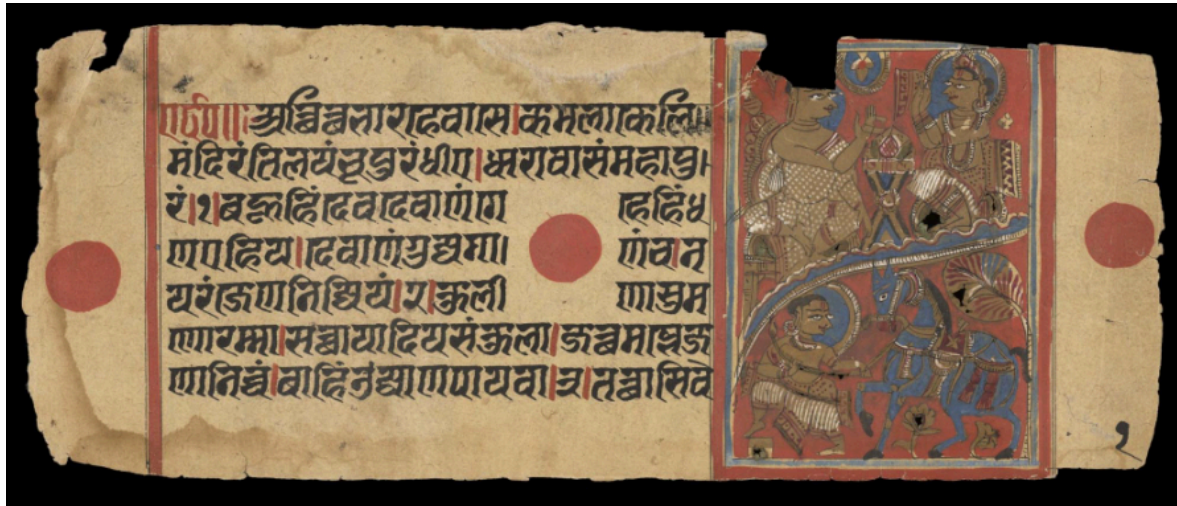 ॥र्द०॥ अत्थित्थ भारहे वासे।कमलाकेलि
मंदिरं तिलयं वू पुरंधीए।धारावासं महापु।
रं।१।बहूहिं देवदेवाणं गेहेहिं ध
णएहि य।देवाणं गुज्झगा।णं व।न
यरं जणनिच्चियं।२।कुलीणा सुम
णा रम्मा।सच्छाया दियसंकुला।जत्थ मज्झे ज
णा निच्चं।बाहिं उज्जाणपायवा।३।तत्थासि वे
१